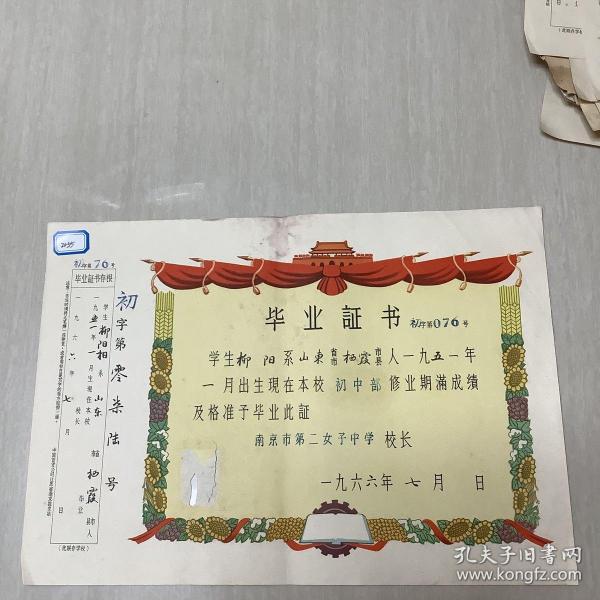 毕业証书
初字第076号
学生柳 阳系山东省市栖霞市县人一九五一年
一月出生現在本校初中部修业期滿成績
及格准予毕业此証
南京市第二女子中学 校长
一九六六年七月 日
初字第76号
毕业証书存根
学生柳阳相系山东省市栖霞县市人
一九五一年一月生現在本校毕业
校长
一九六六年七月 日
(此联存学校)
初字第零柒陆号
孔夫子旧书网
www.kongfz.com